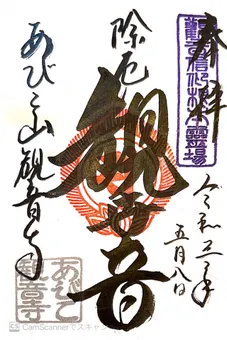 奉拝
觀音信仰根本靈場
除厄
観世音
令和三年
五月八日
あびこ山観音寺
あびこ
観音寺
CS CamScannerでスキャン